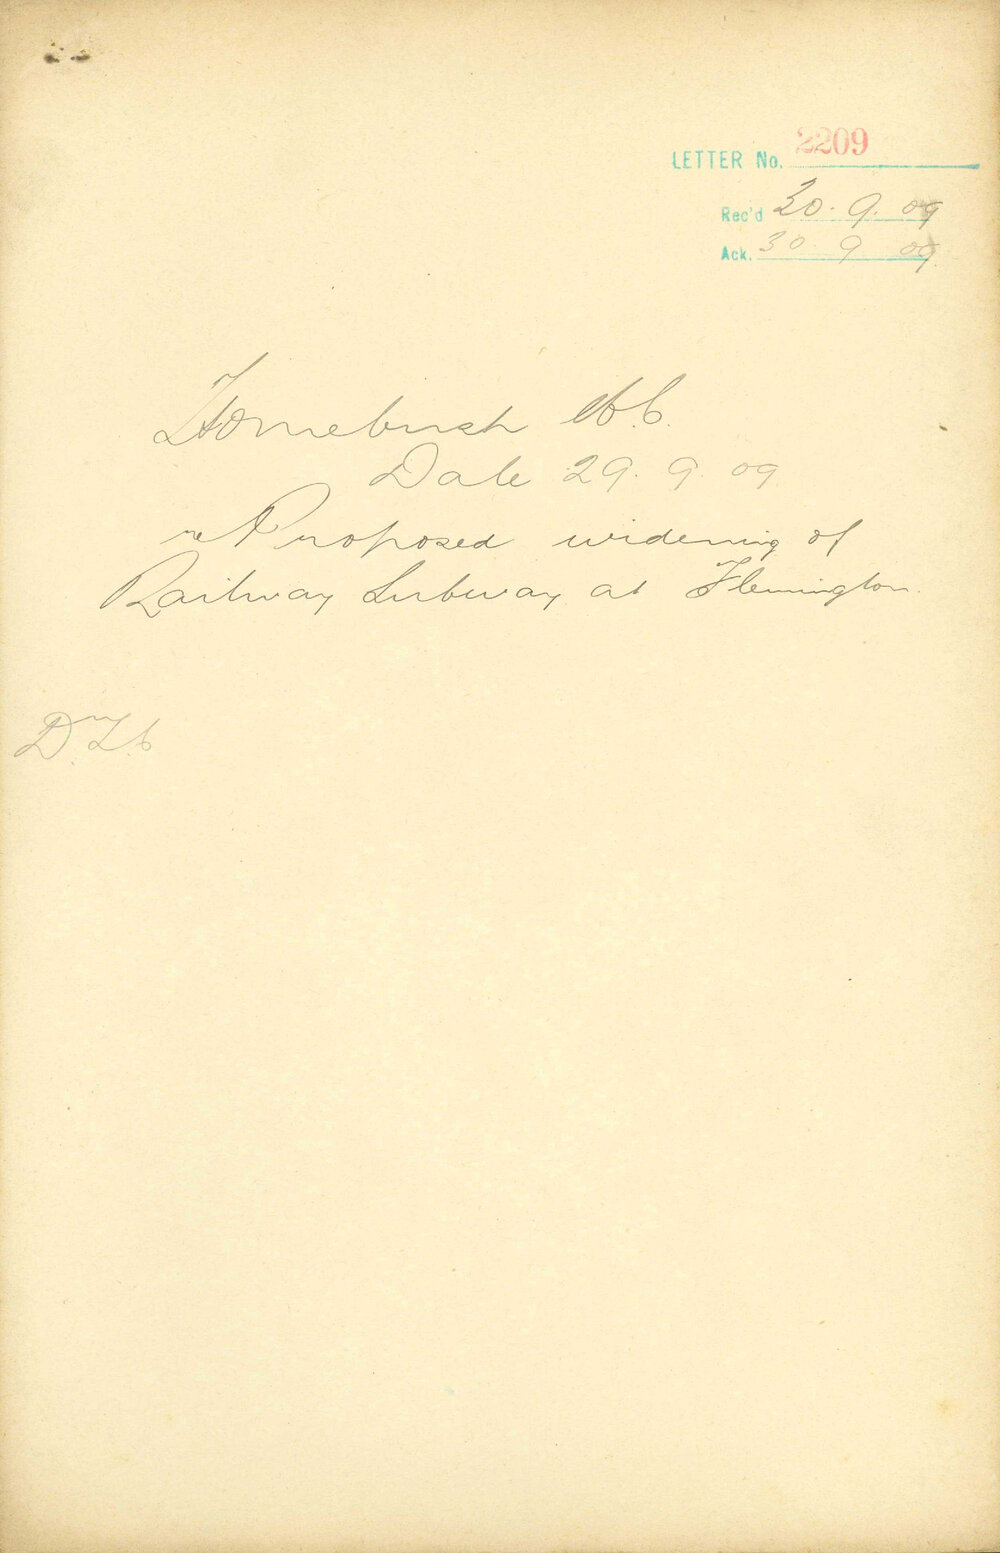 LETTER No. 2209
Rec'd 30. 9. 09
Ack. 30 9 09
Homebush M.C.
Date 29. 9. 09
re Proposed widening of
Railway Subway at Flemington.